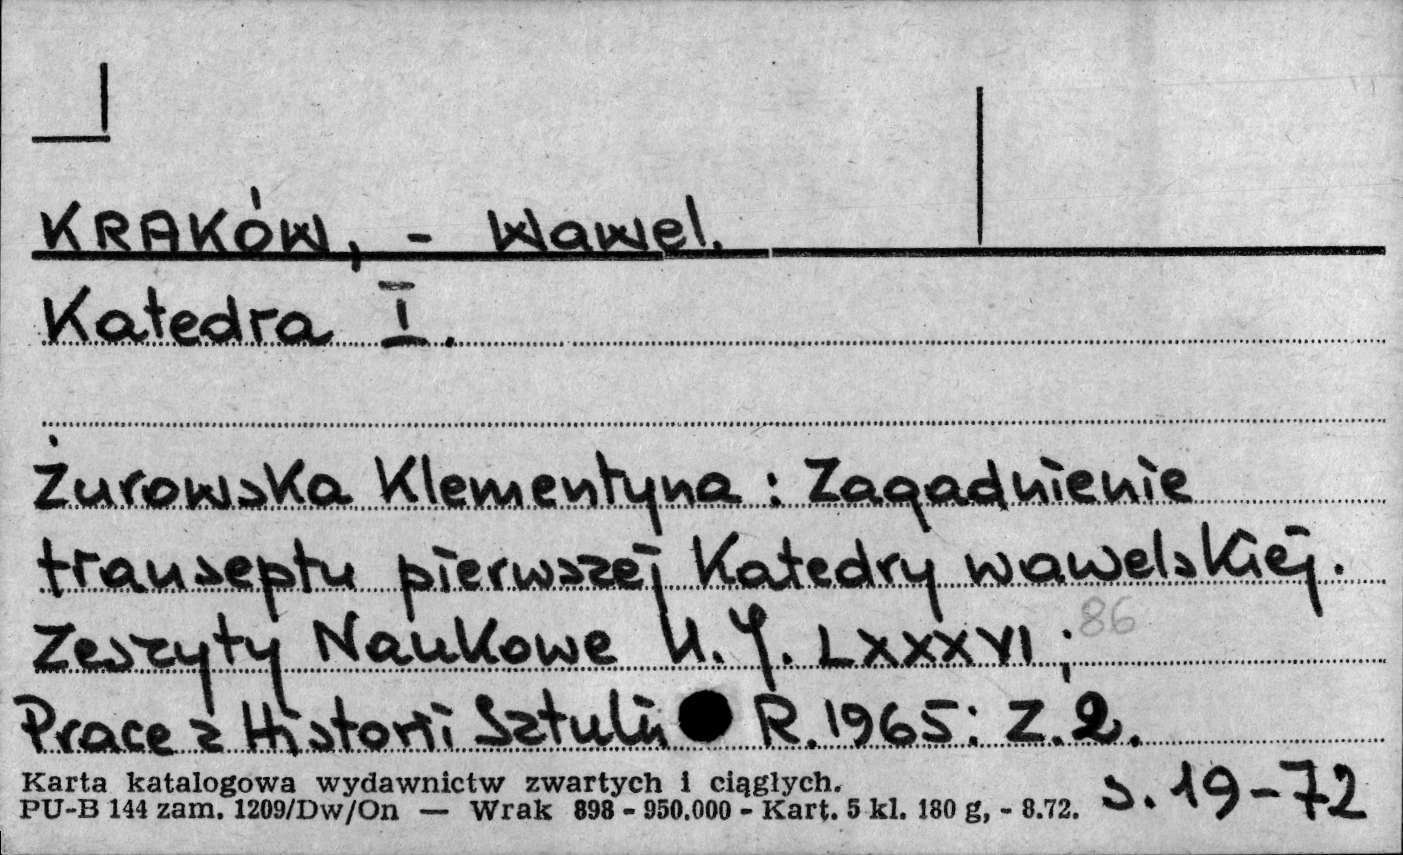 KRAKÓW, - Wawel.
Katedra I.
Żurowska Klementyna: Zagadnienie
transeptu pierwszej Katedry wawelskiej.
Zeszyty Naukowe U.J. LXXXVI; 86
Prace z Historii Sztuki R.1965: Z.2.
s. 19-72
Karta katalogowa wydawnictw zwartych i ciągłych.
PU-B 144 zam. 1209/Dw/On — Wrak 898 - 950.000 - Kart. 5 kl. 180 g, - 8.72.